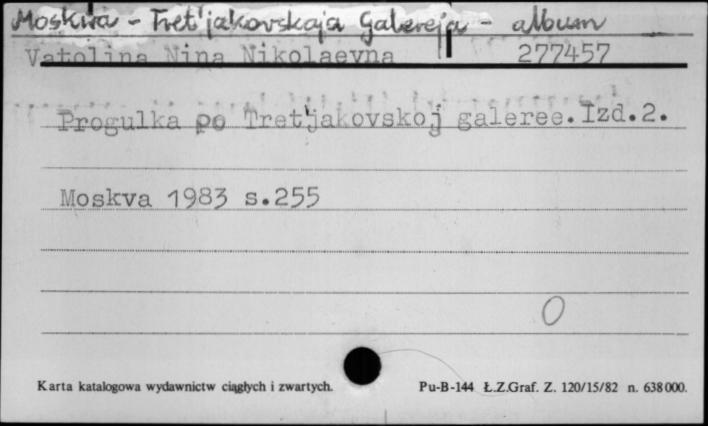 Moskwa - Tret'jakovskaja Galereja - album
Vatolina Nina Nikolaevna 277457
Progulka po Tret'jakovskoj galeree. Izd.2.
Moskva 1983 s.255
0
Karta katalogowa wydawnictw ciągłych i zwartych. Pu-B-144 Ł.Z.Graf. Z. 120/15/82 n. 638000.